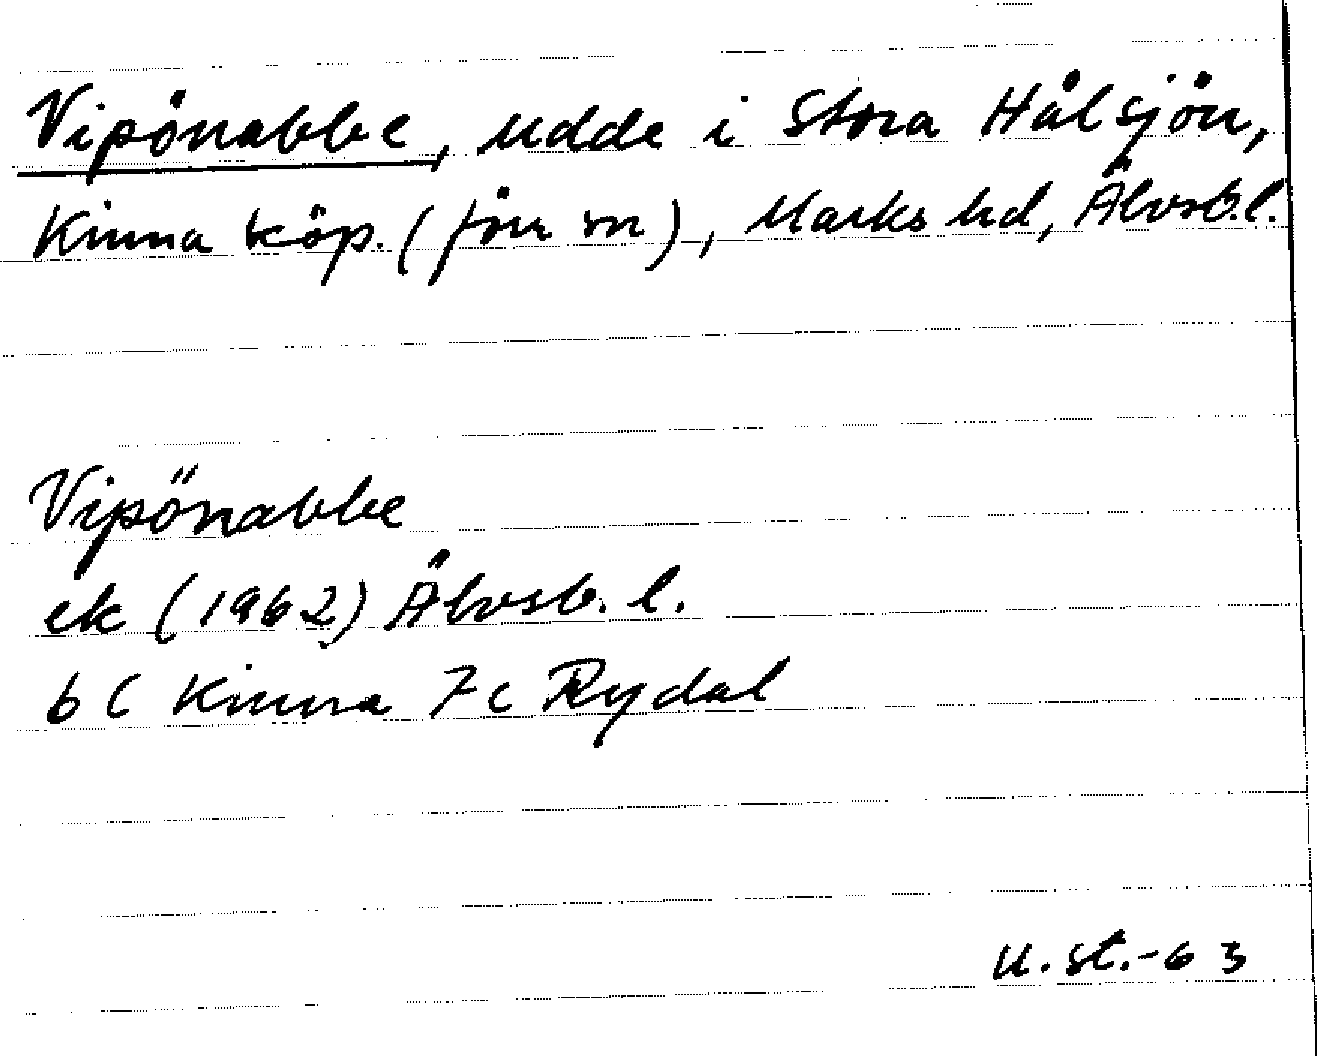 Vipönabbe, udde i Stora Hålsjön,
Kinna köp. (förr sn), Marks hd, Älvsb.l.
Vipönabbe
ek (1962) Älvsb. l.
6 C Kinna 7c Rydal
u. st.-63